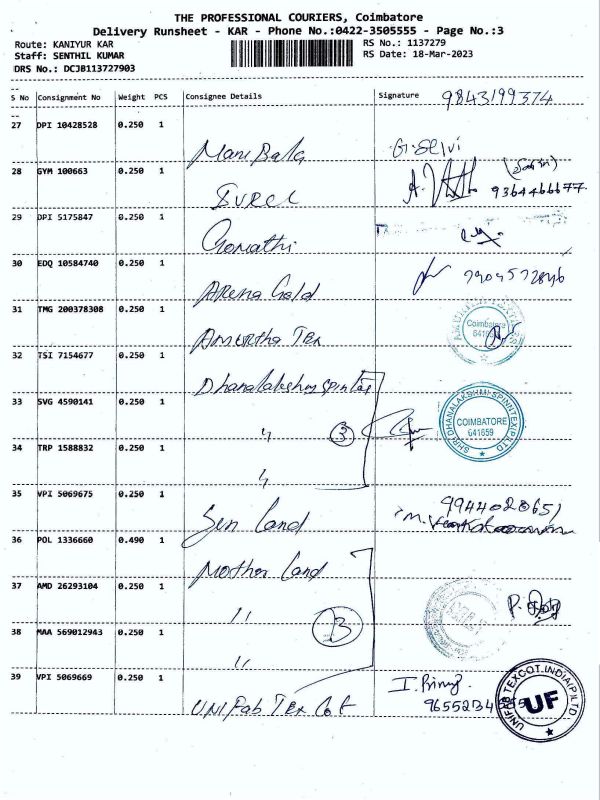 THE PROFESSIONAL COURIERS, Coimbatore
Delivery Runsheet - KAR - Phone No.:0422-3505555 - Page No.:3
Route: KANIYUR KAR
RS No.: 1137279
Staff: SENTHIL KUMAR
RS Date: 18-Mar-2023
DRS No.: DCJB113727903
S No Consignment No Weight PCS Consignee Details Signature 9843199374
27 DPI 10428528 0.250 1
Mani Bala G. Selvi
28 GYM 100663 0.250 1
9364466677
29 DPI 5175847 0.250 1
Gomathi
30 EDQ 10584740 0.250 1
Arena Gold
31 TMG 200378308 0.250 1
Coimbatore
Amirtha Tex
32 TSI 7154677 0.250 1
Dhanalakshmi Spintex
33 SVG 4590141 0.250 1
〃 3
SHRI DHANALAKSHMI SPINNTEX (P) LTD
COIMBATORE
641659
34 TRP 1588832 0.250 1
〃
35 VPI 5069675 0.250 1
Sen Land
36 POL 1336660 0.490 1
Mother Land
37 AMD 26293104 0.250 1
〃 3
38 MAA 569012943 0.250 1
〃
39 VPI 5069669 0.250 1
UNIFab Tex Cot
UNIFAB TEXCOT INDIA (P) LTD
UF